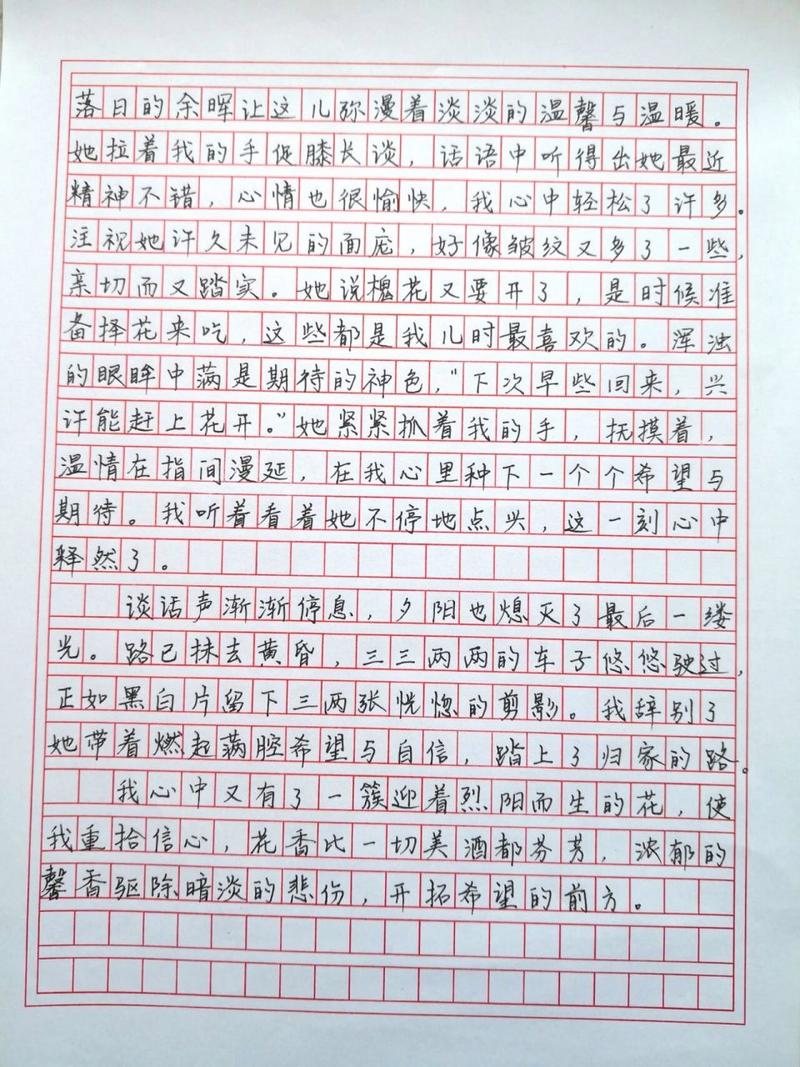 落日的余晖让这儿弥漫着淡淡的温馨与温暖。
她拉着我的手促膝长谈，话语中听得出她最近
精神不错，心情也很愉快，我心中轻松了许多。
注视她许久未见的面庞，好像皱纹又多了一些，
亲切而又踏实。她说槐花又要开了，是时候准
备择花来吃，这些都是我儿时最喜欢的。浑浊
的眼眸中满是期待的神色，“下次早些回来，兴
许能赶上花开。”她紧紧抓着我的手，抚摸着，
温情在指间漫延，在我心里种下一个个希望与
期待。我听着看着她不停地点兴，这一刻心中
释然了。
谈话声渐渐停息，夕阳也熄灭了最后一缕
光。路已抹去黄昏，三三两两的车子悠悠驶过，
正如黑白片留下三两张恍惚的剪影。我辞别了
她带着燃起满腔希望与自信，踏上了归家的路。
我心中又有了一簇迎着烈阳而生的花，使
我重拾信心，花香比一切美酒都芬芳，浓郁的
馨香驱除暗淡的悲伤，开拓希望的前方。